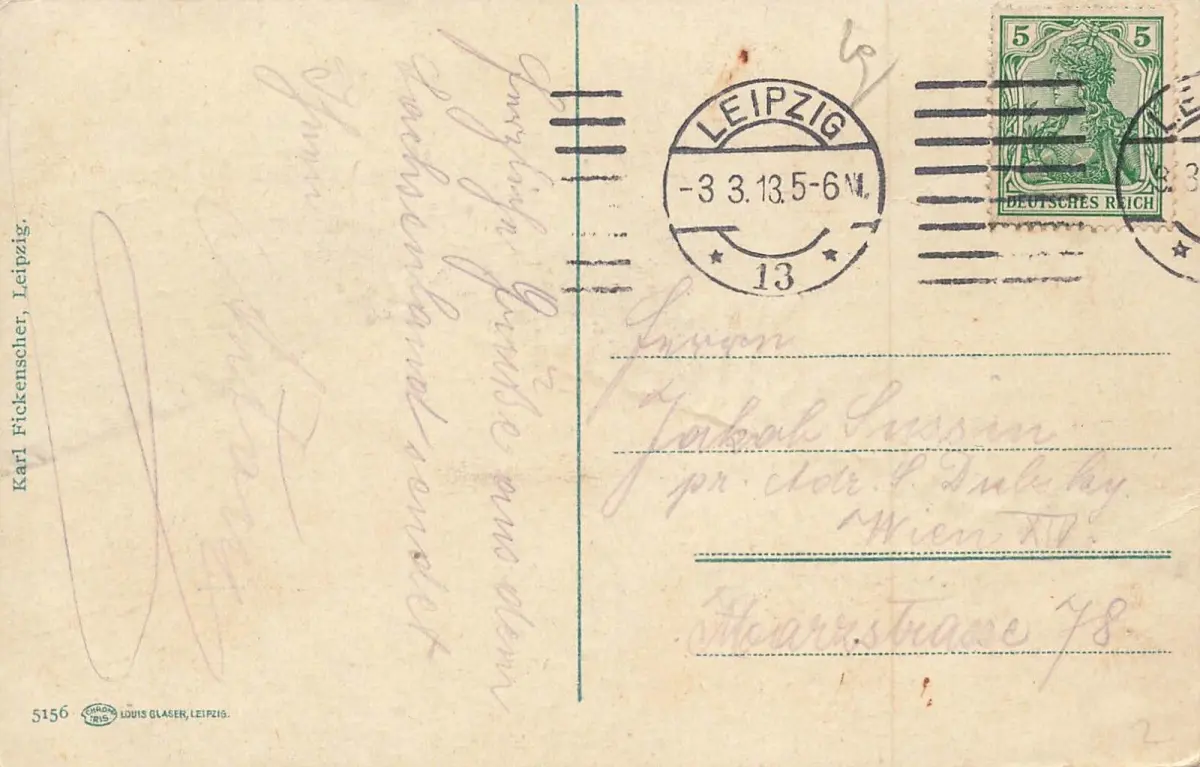 Herzliche Grüße aus dem
Sachsenland sendet
Ihnen
5
5
DEUTSCHES REICH
LEIPZIG
-3 3.13.5-6 N.
* 13 *
Herrn
Jakob Sussin
pr. Adr. S.
Wien XV.
78
Karl Fickenscher, Leipzig.
5156
CHROMO
IRIS
LOUIS GLASER, LEIPZIG.